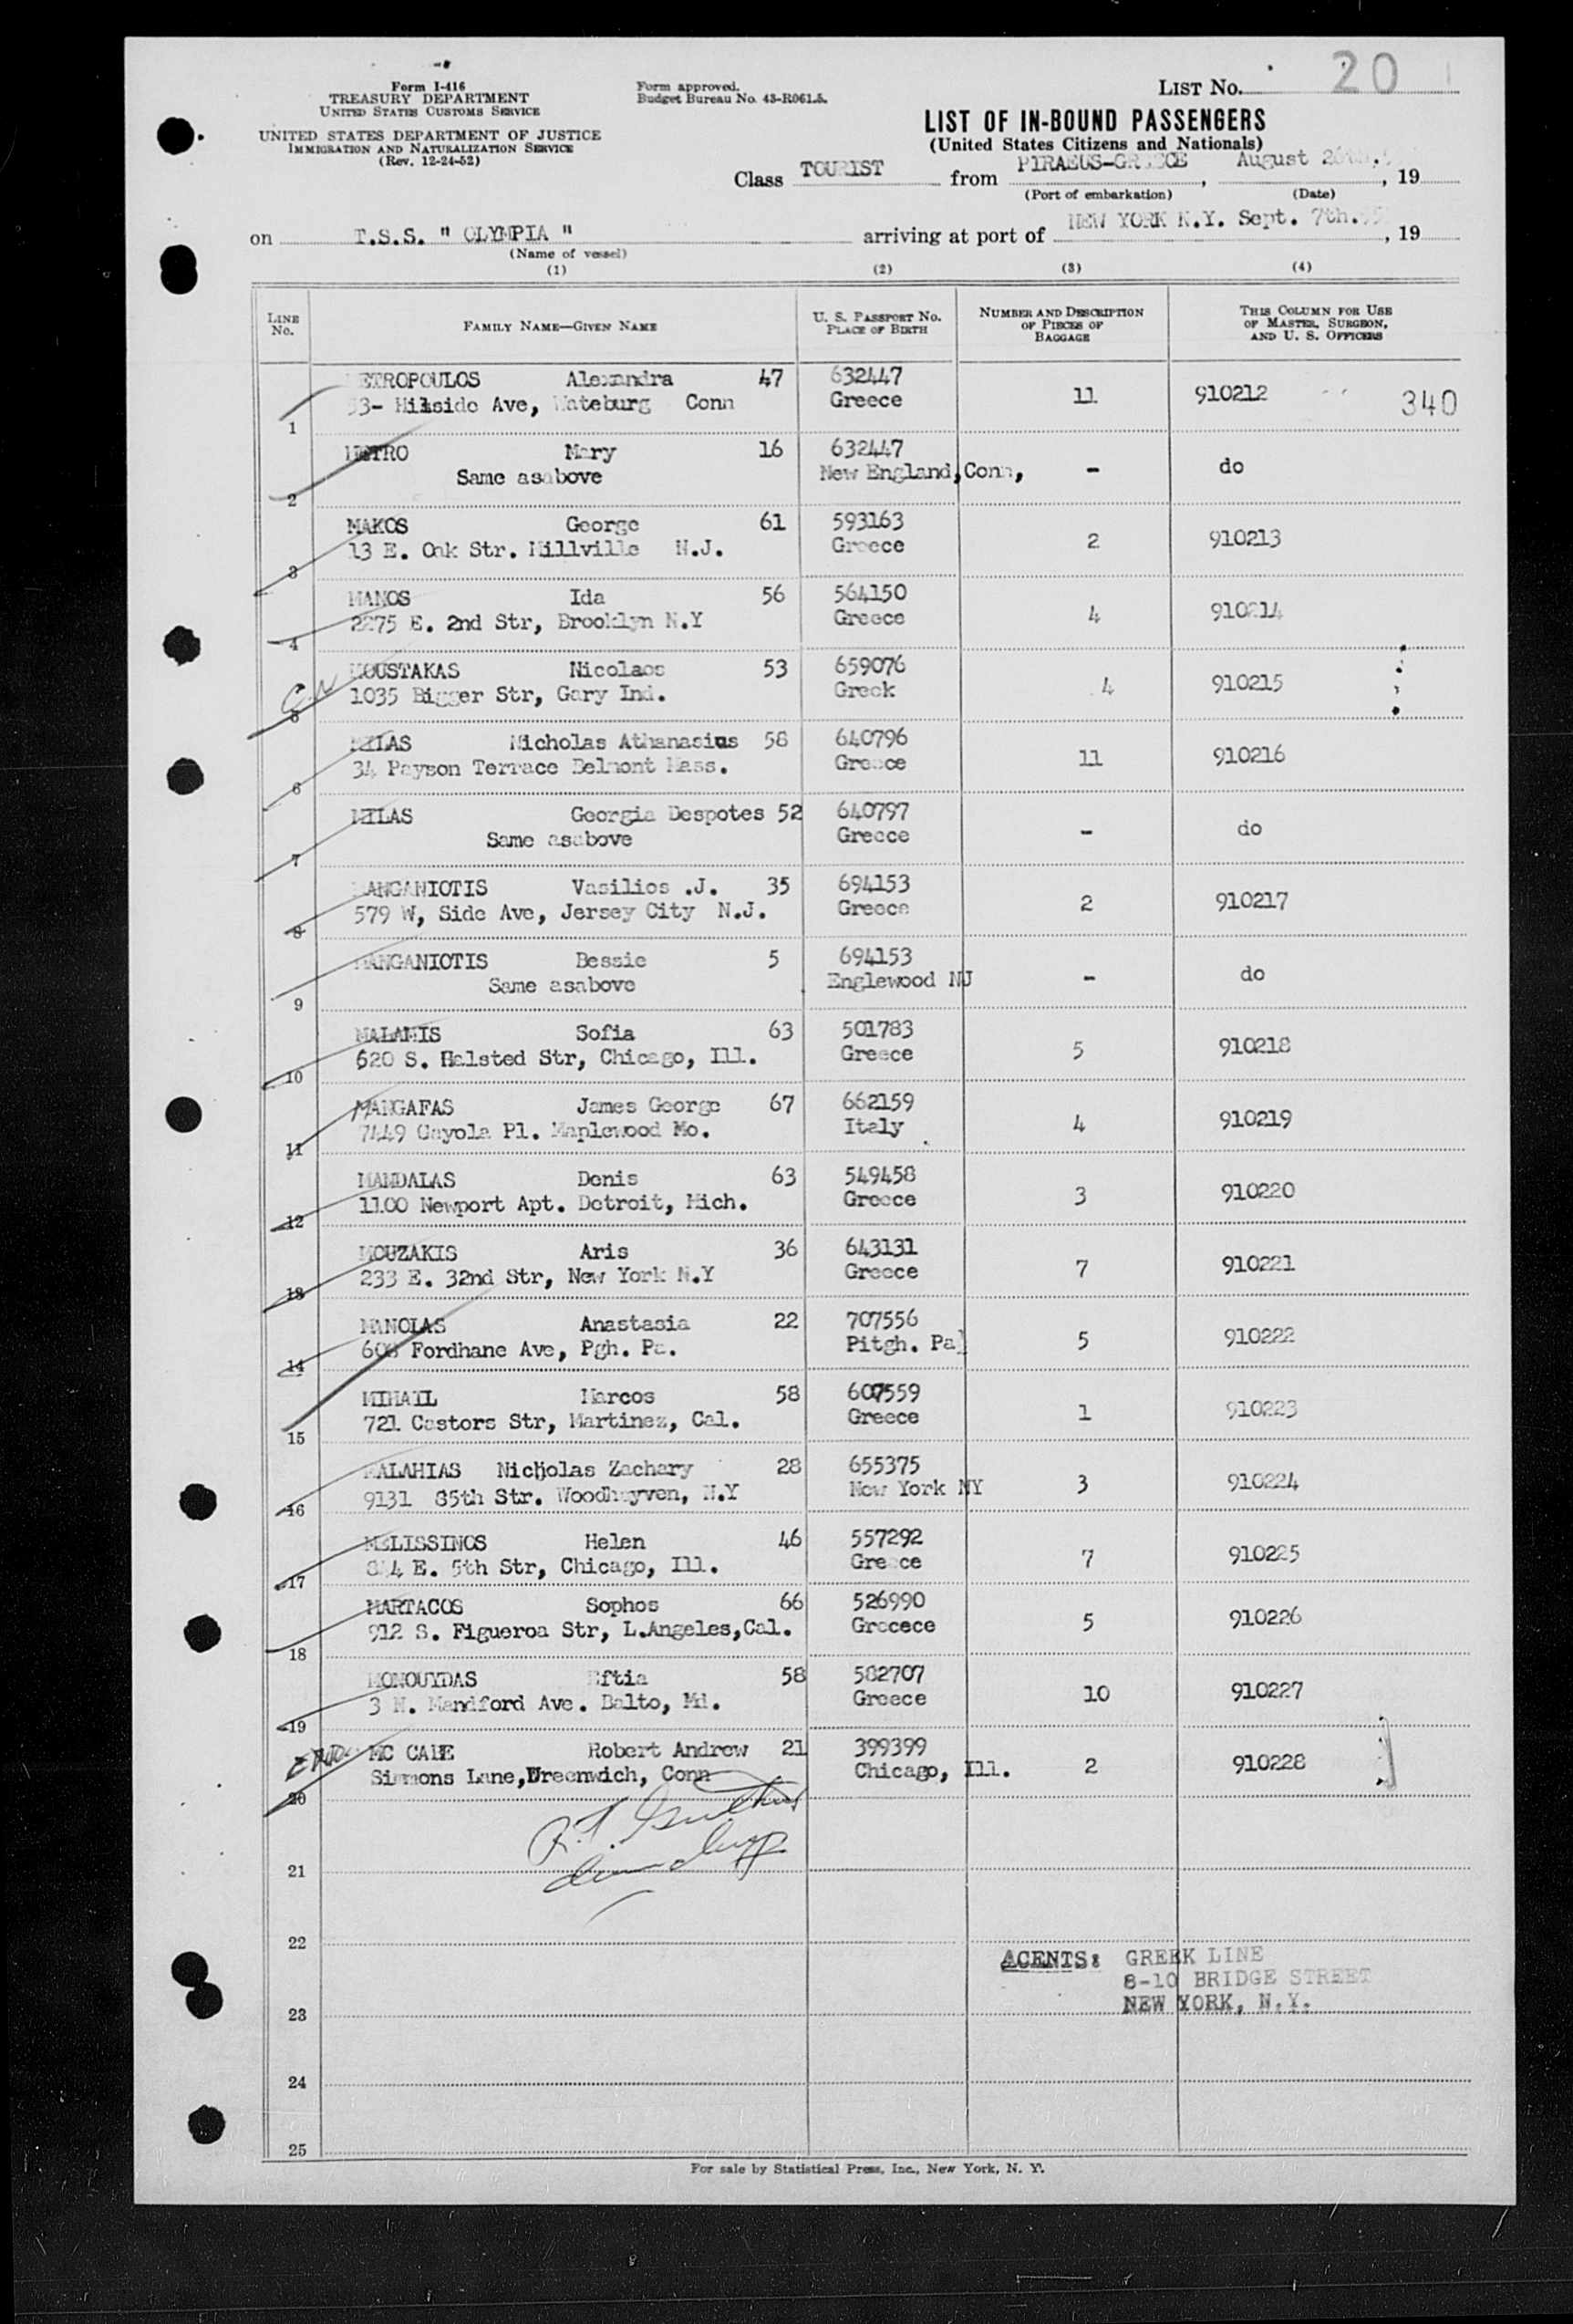 Form I-416
TREASURY DEPARTMENT
UNITED STATES CUSTOMS SERVICE
UNITED STATES DEPARTMENT OF JUSTICE
IMMIGRATION AND NATURALIZATION SERVICE
(Rev. 12-24-52)
Form approved.
Budget Bureau No. 43-R061.5.
LIST No. 20
LIST OF IN-BOUND PASSENGERS
(United States Citizens and Nationals)
Class TOURIST from PIRAEUS-GREECE, August, 19
(Port of embarkation) (Date)
on T.S.S. " OLYMPIA " arriving at port of NEW YORK N.Y. Sept. 7th., 19
(Name of vessel)
(1) (2) (3) (4)
LINE No. FAMILY NAME—GIVEN NAME U. S. PASSPORT No. PLACE OF BIRTH NUMBER AND DESCRIPTION OF PIECES OF BAGGAGE THIS COLUMN FOR USE OF MASTER, SURGEON, AND U. S. OFFICERS
ETROPOULOS Alexandra 47 632447
53- Hilside Ave, Wateburg Conn Greece 11 910212 340
1
Mary 16 632447
Same asabove New England, Conn, - do
2
MAKOS George 61 593163
13 E. Oak Str. Millville N.J. Greece 2 910213
3
MANOS Ida 56 564150
2275 E. 2nd Str, Brooklyn N.Y Greece 4 910214
4
MOUSTAKAS Nicolaos 53 659076
1035 Bigger Str, Gary Ind. Greek 4 910215
5
MILAS Nicholas Athanasius 58 640796
34 Payson Terrace Belmont Mass. Greece 11 910216
6
MILAS Georgia Despotes 52 640797
Same asabove Greece - do
7
MANGANIOTIS Vasilios .J. 35 694153
579 W, Side Ave, Jersey City N.J. Greece 2 910217
8
MANGANIOTIS Bessie 5 694153
Same asabove Englewood NJ - do
9
MALAMIS Sofia 63 501783
620 S. Halsted Str, Chicago, Ill. Greece 5 910218
10
MANGAFAS James George 67 662159
7449 Gayola Pl. Maplewood Mo. Italy 4 910219
11
MANDALAS Denis 63 549458
1100 Newport Apt. Detroit, Mich. Greece 3 910220
12
MOUZAKIS Aris 36 643131
233 E. 32nd Str, New York N.Y Greece 7 910221
13
MANOLAS Anastasia 22 707556
608 Fordhane Ave, Pgh. Pa. Pitgh. Pa 5 910222
14
MIHAIL Marcos 58 607559
721 Castors Str, Martinez, Cal. Greece 1 910223
15
MALAHIAS Nicholas Zachary 28 655375
9131 85th Str. Woodhayven, N.Y New York NY 3 910224
16
MELISSINOS Helen 46 557292
E. 5th Str, Chicago, Ill. Greece 7 910225
17
MARTACOS Sophos 66 526990
912 S. Figueroa Str, L.Angeles,Cal. Grecece 5 910226
18
MONOUYDAS Eftia 58 582707
3 N. Mandford Ave. Balto, Md. Greece 10 910227
19
MC CABE Robert Andrew 21 399399
Simmons Lane, Greenwich, Conn Chicago, Ill. 2 910228
20
21
22
AGENTS: GREEK LINE
8-10 BRIDGE STREET
NEW YORK, N.Y.
23
24
25
For sale by Statistical Press, Inc., New York, N. Y.